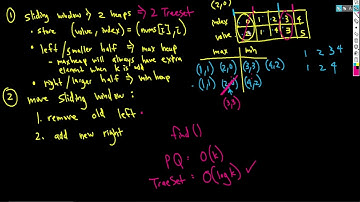 ① sliding window ⇒ 2 heaps ⇒ 2 TreeSet
• store (value, index) = (nums[i], i)
• left / smaller half ⇒ max heap
- maxheap will always have extra element when k is odd
• right / larger half ⇒ min heap
② move sliding window:
1. remove old left
2. add new right
(2,0)
index 0 1 2 3 4
value 2 1 3 4 5
max min
(1,1) (2,0) (3,3) (4,2)
(1,1) (2,0) (4,2)
(3,3)
1 2 3 4
1 2 4
find()
PQ = O(k)
TreeSet = O(log k) ✓